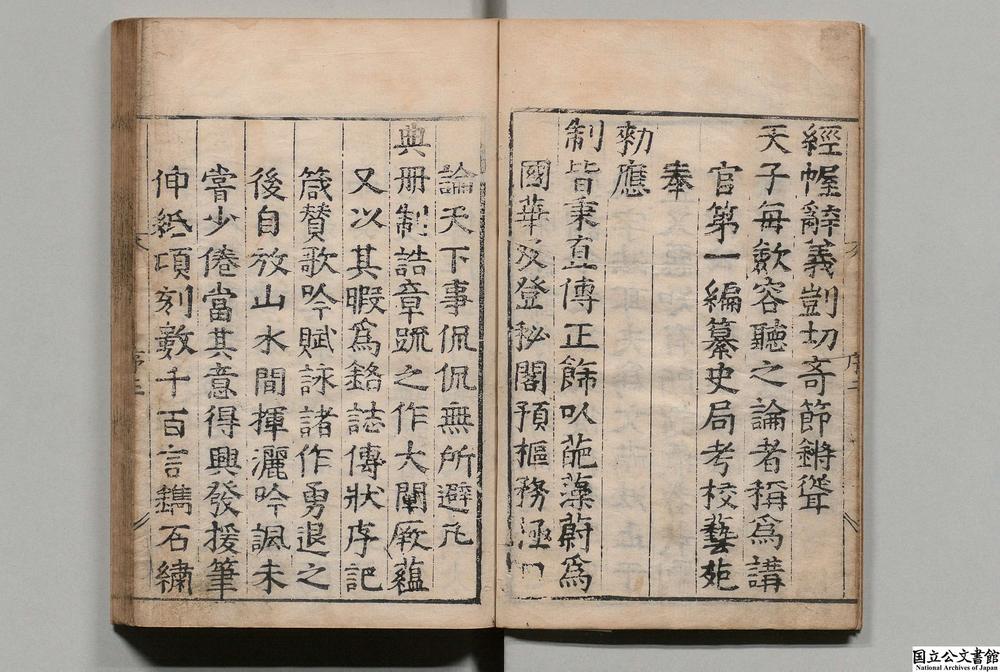 經幄辭義剴切奇節鏘聳
天子每歛容聽之論者稱爲講
官第一編纂史局考校藝苑
奉
勑應
制皆秉直傳正飾以葩藻蔚爲
國華及登秘閣預樞務極口
論天下事侃侃無所避凡
典册制誥章䟽之作大闡厥蘊
又以其暇爲銘誌傳狀序記
箴贊歌吟賦詠諸作勇退之
後自放山水間揮灑吟諷未
嘗少倦當其意得興發援筆
伸紙頃刻數千百言鐫石繡
序二
序三
国立公文書館
National Archives of Japan